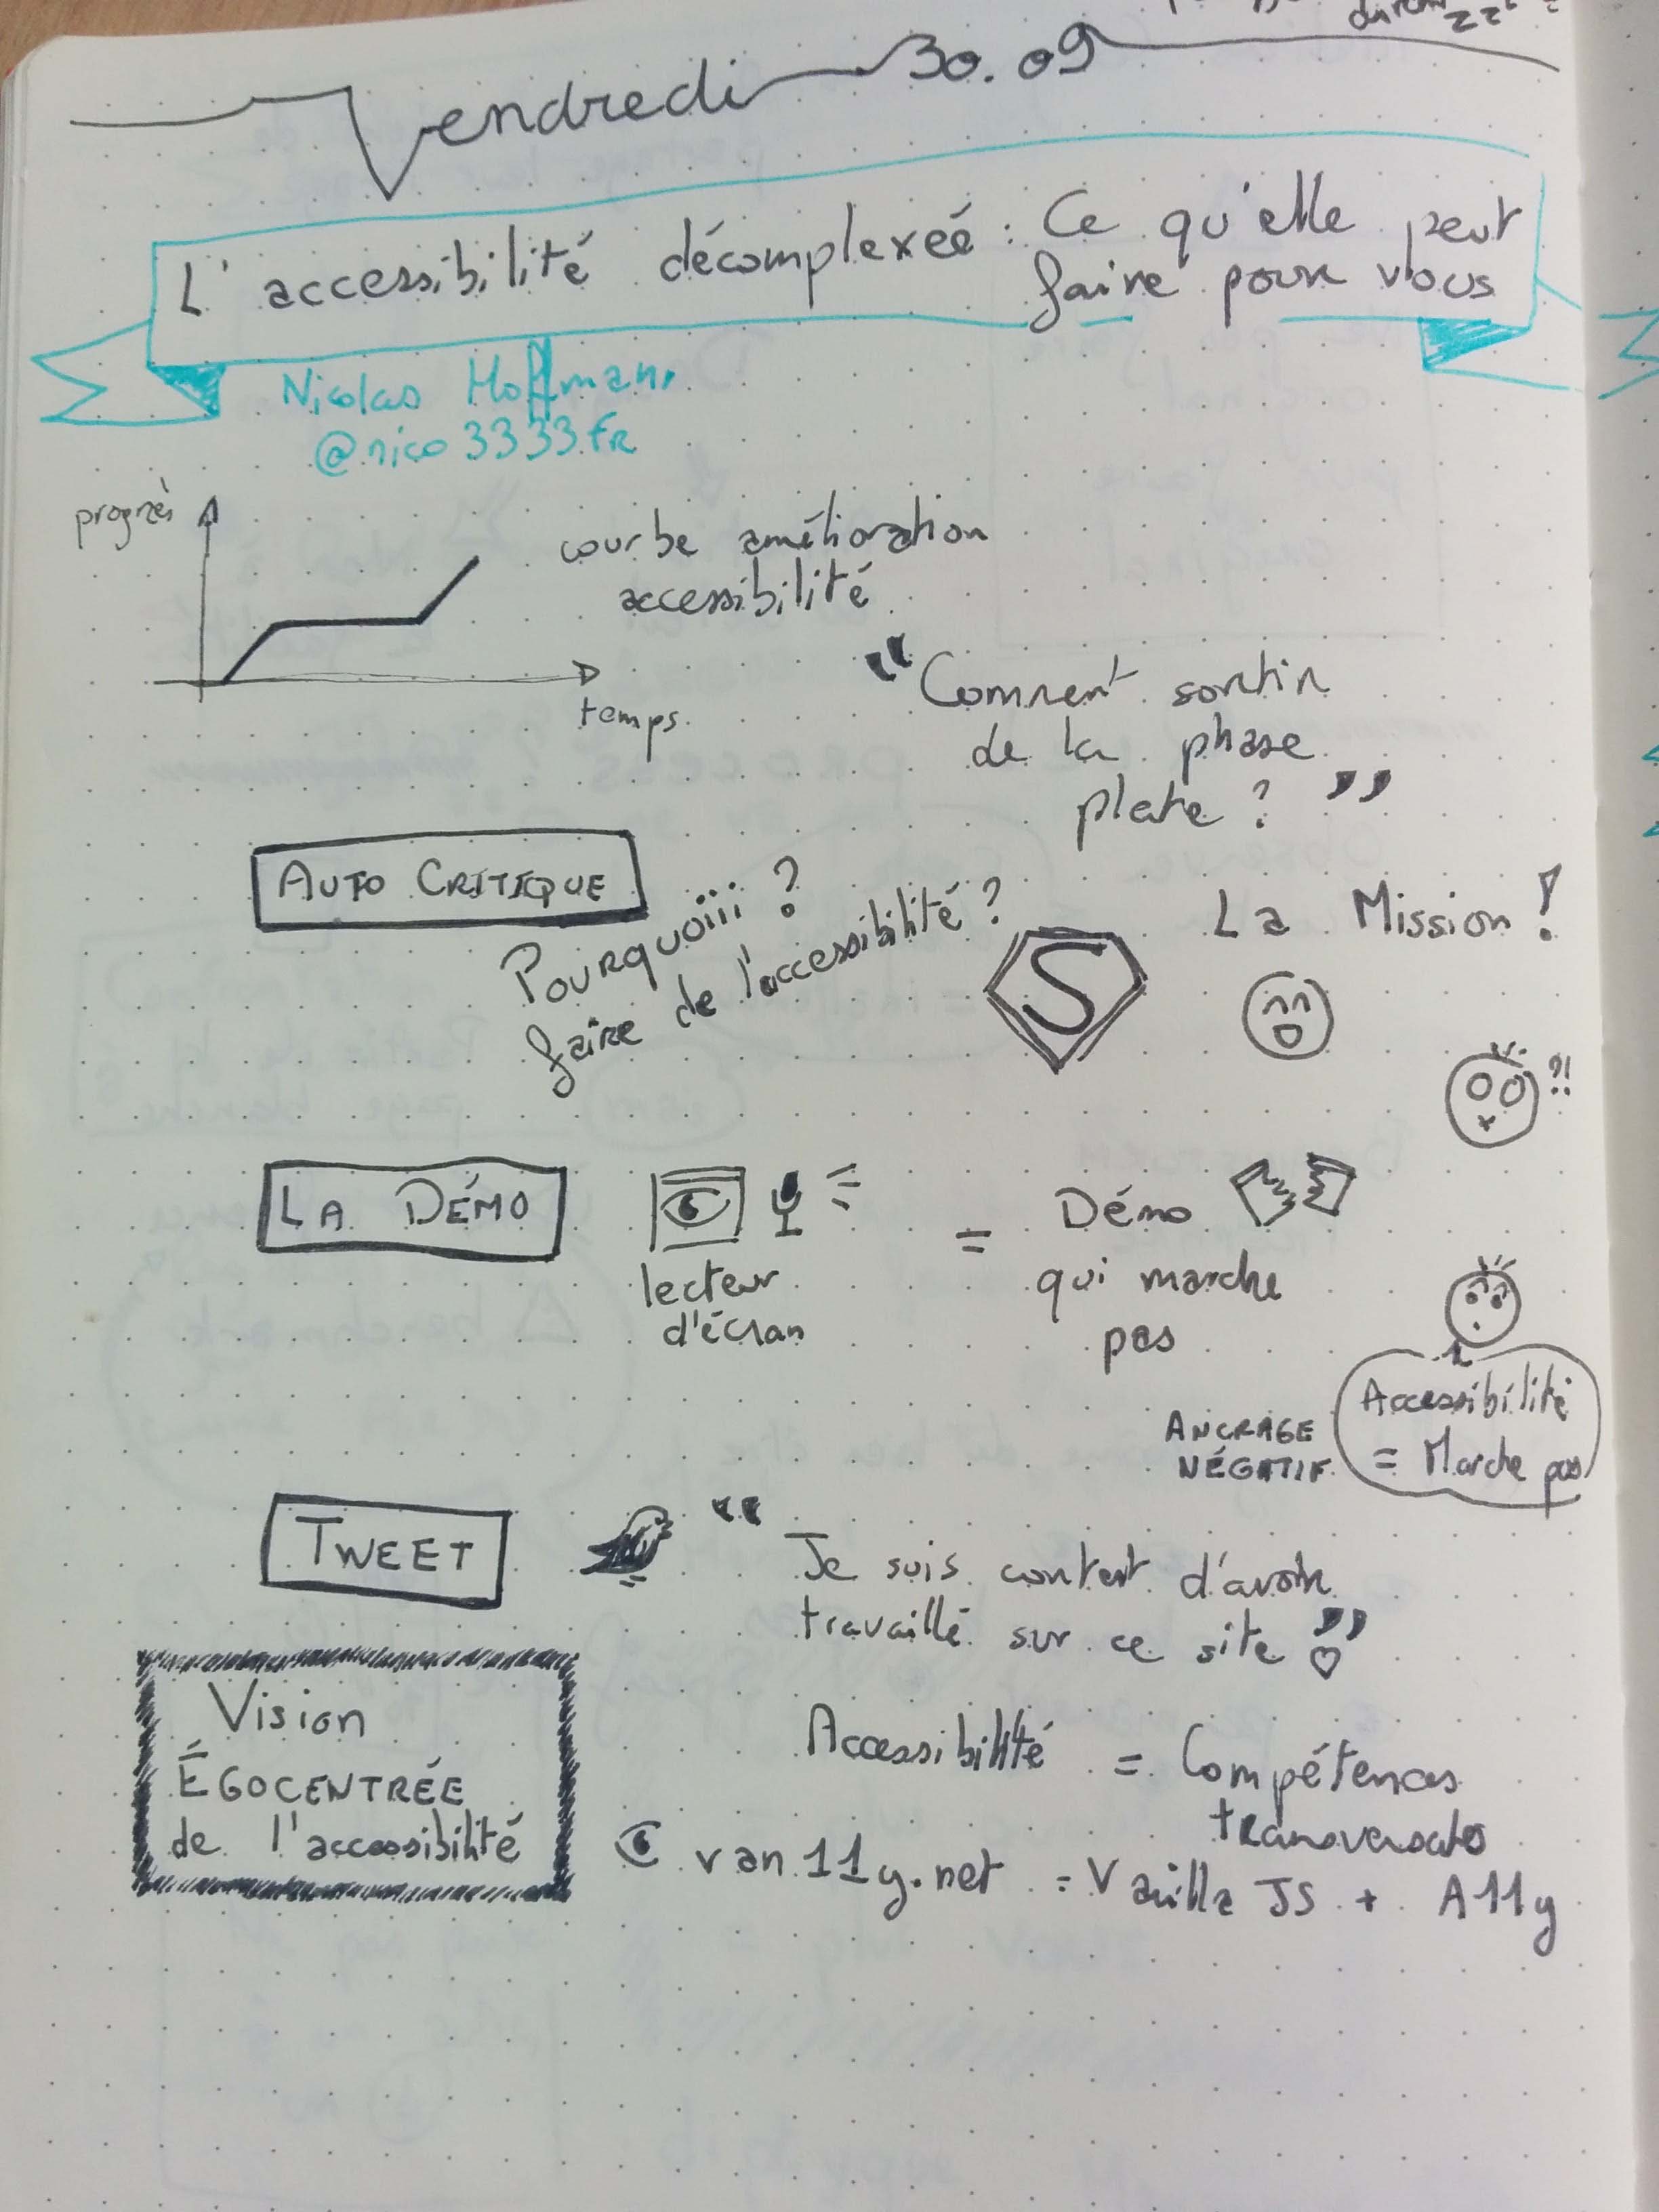 Vendredi 30.09
L'accessibilité décomplexéé : Ce qu'elle peut
faire pour vous
Nicolas Hoffmann
@nico3333fr
progrès
courbe amélioration
accessibilité
temps
“Comment sortir
de la phase
plate ?”
AUTO CRITIQUE
Pourquoiii ?
faire de l'accessibilité ?
S
La Mission !
?!
LA DÉMO
lecteur
d'écran
= Démo
qui marche
pas
ANCRAGE
NÉGATIF
Accessibilité
= Marche pas
TWEET
“Je suis content d'avoir
travaillé sur ce site”
Vision
ÉGOCENTRÉE
de l'accessibilité
Accessibilité = Compétences
transversales
van11y.net = Vanilla JS + A11y